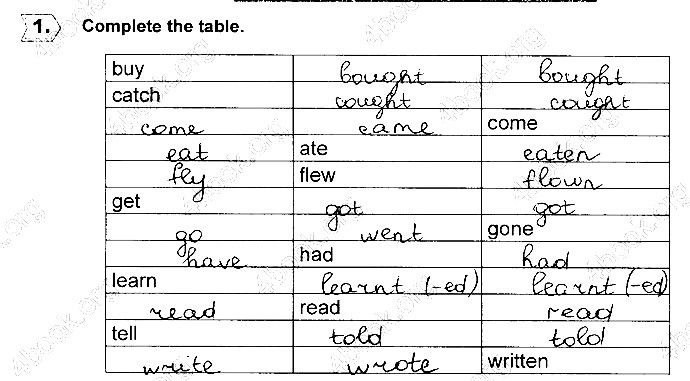 1. Complete the table.
buy bought bought
catch cought cought
come came come
eat ate eaten
fly flew flown
get got got
go went gone
have had had
learn learnt (-ed) learnt (-ed)
read read read
tell told told
write wrote written